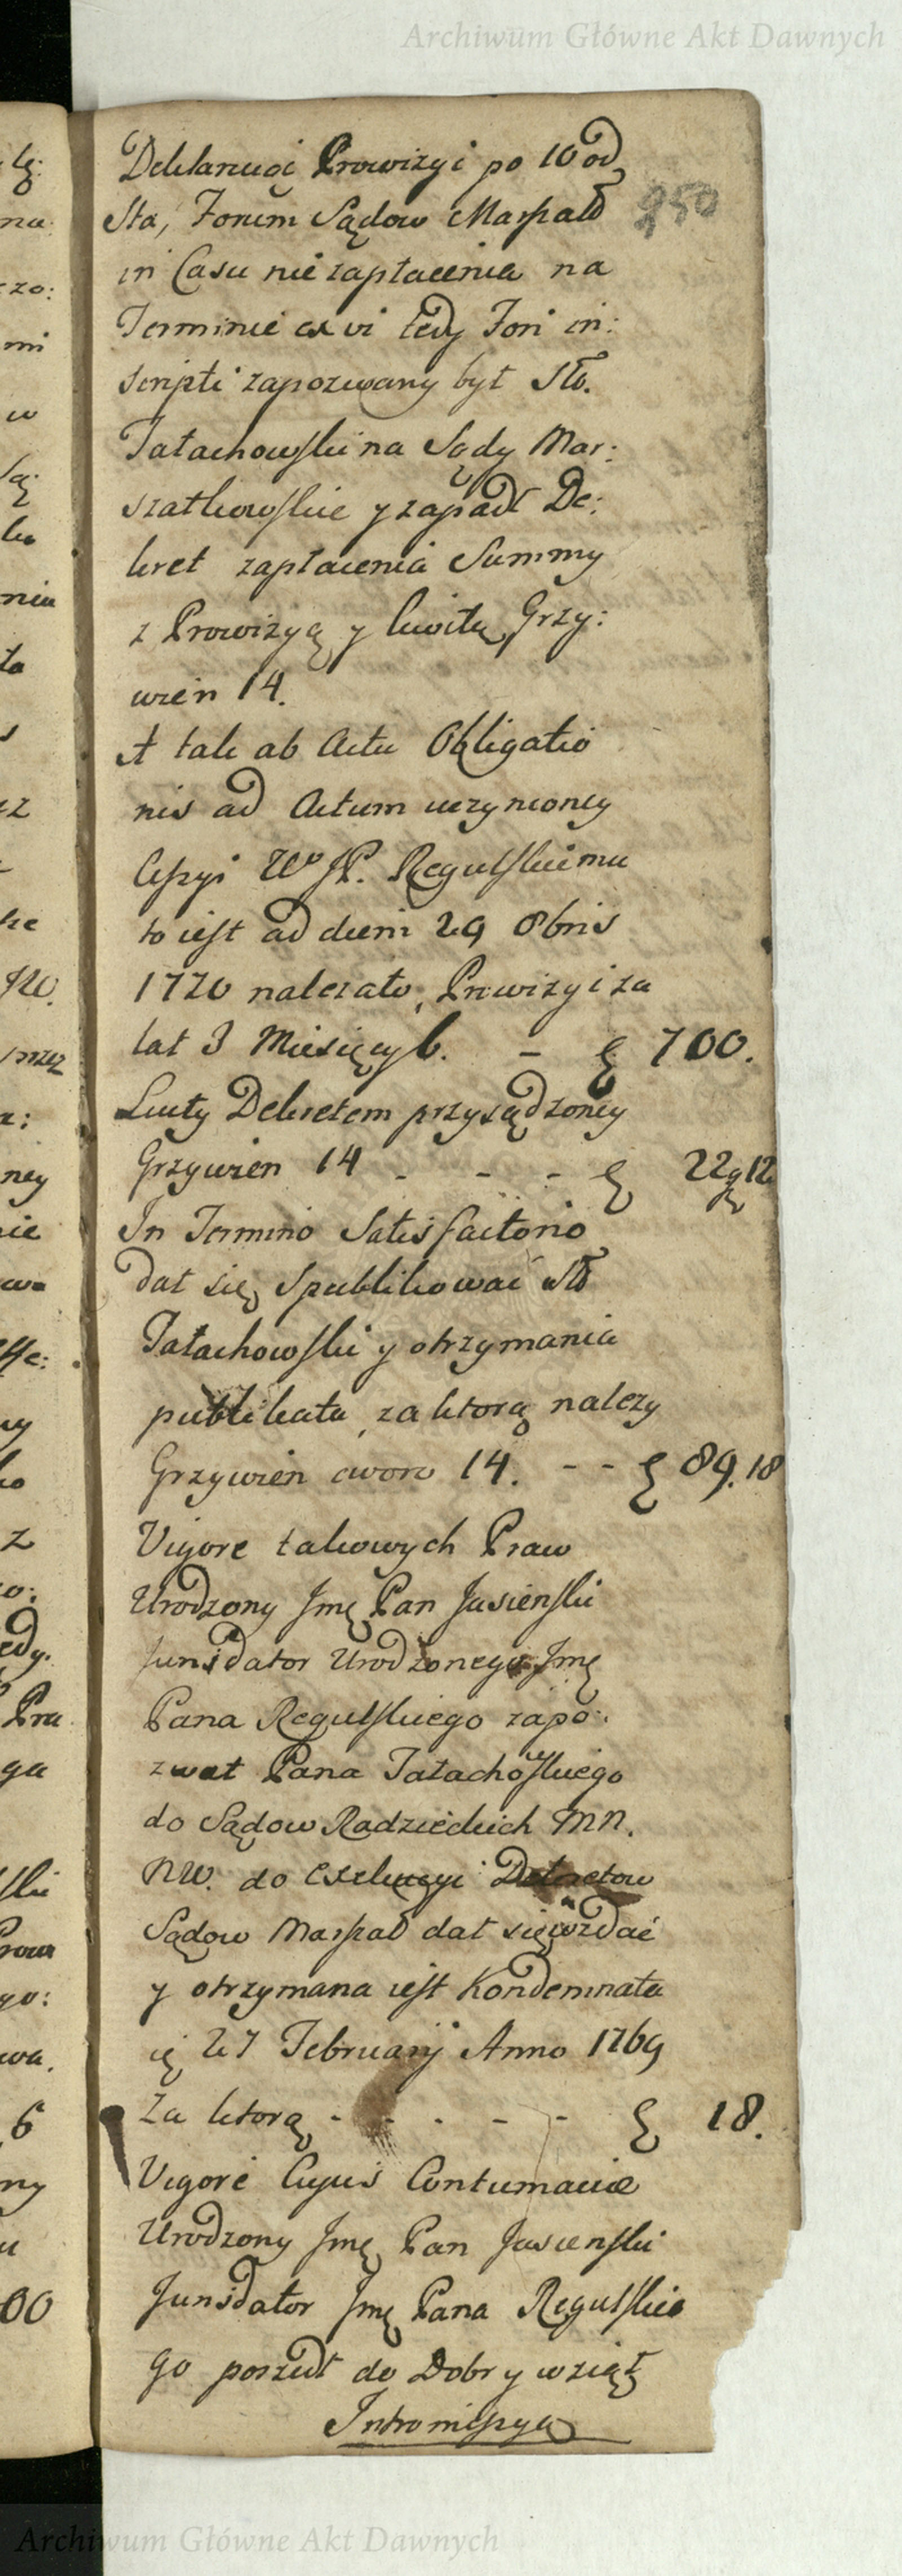 Archiwum Główne Akt Dawnych
Deklaracyi Prowizyi po 10 od
Sta, Forum Sądow Marszał
in Casu nie zapłacenia na
Terminie ex vi tedy Fori in:
scripti zapozwany był Sło.
Tatachowski na Sądy Mar:
szałkowskie y zapadł De:
kret zapłacenia Summy
z Prowizyą y luitą Grzy:
wien 14.
A tak ab Actu Obligatio
nis ad Actum uczynioney
Cessyi WJP. Regulskiemu
to iest ad diem 29 8bris
1720 nalezało Prowizyi za
lat 3 Miesięcy 6. - 700.
Luity Dekretem przysądzoney
Grzywien 14 - - - 22 g 12
In Termino Satisfactorio
dał się Spublikować Sło
Tatachowski y otrzymania
publikata, za ktorą nalezy
Grzywien 14. - - 89. 18
Vigore takowych Praw
Urodzony Jmę Pan Jasienski
Jurisdator Urodzonego Jmę
Pana Regulskiego zapo:
zwał Pana Tatachowskiego
do Sądow Radzieckich MN.
NW. do Exekucyi Dekretow
Sądow Marszał dał się wzdać
y otrzymana iest Kondemnata
27 Februarij Anno 1769
Za ktorą - - - - - 18.
Vigore Cuius Contumaciæ
Urodzony Jmę Pan Jasienski
Jurisdator Jmę Pana Regulskie
go poszedł do Dobr y wziął
Intromissyą
Archiwum Główne Akt Dawnych